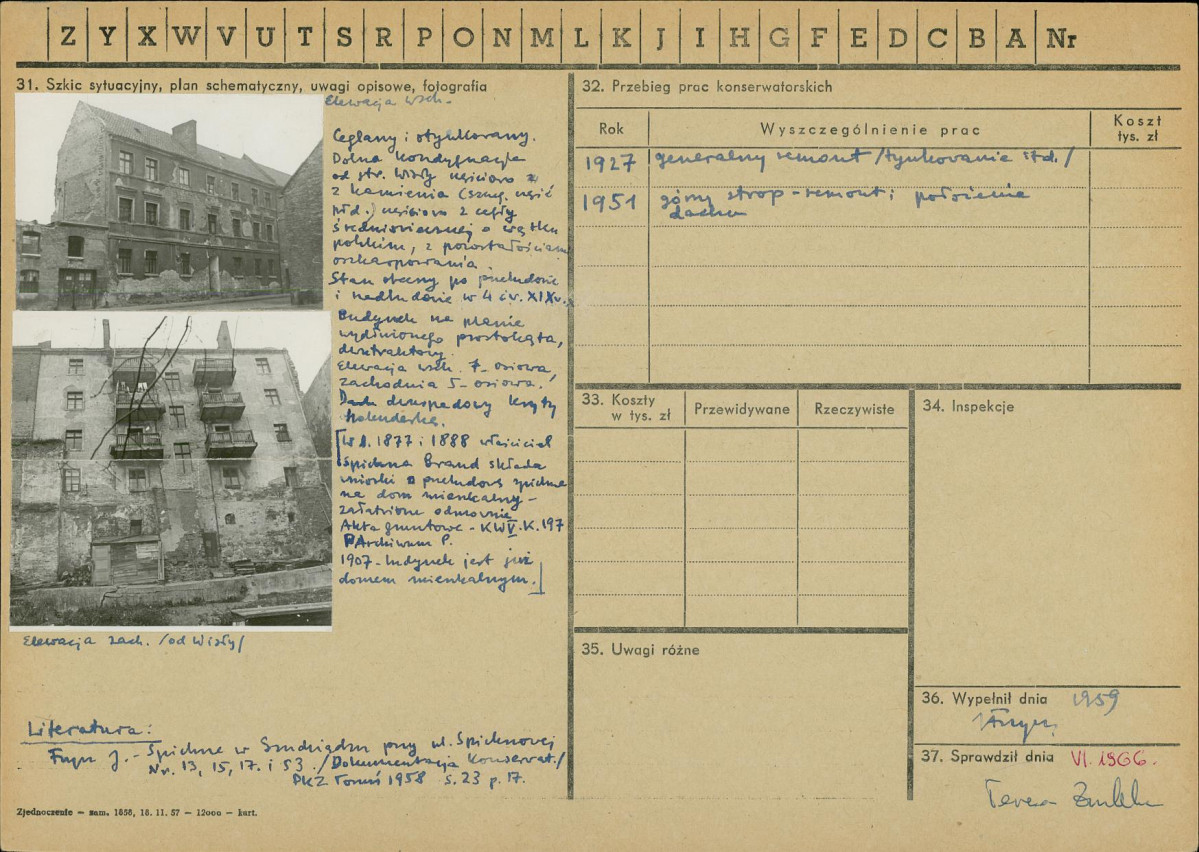 Z Y X W V U T S R P O N M L K J I H G F E D C B A Nr
31. Szkic sytuacyjny, plan schematyczny, uwagi opisowe, fotografia
Elewacja wsch.
Ceglany i otynkowany.
Dolna kondygnacja
od str. Wisły częściowo
z kamienia (szczeg. część
płd.) częściowo z cegły
średniowiecznej o wątku
polskim, z pozostałościami
oszkarpowania.
Stan obecny po przebudowie
i nadbudowie w 4 ćw. XIX w.
Budynek na planie
wydłużonego prostokąta,
dwutraktowy.
Elewacja wsch. 7-osiowa,
zachodnia 5-osiowa.
Dach dwuspadowy kryty
holenderką.
[W l. 1877 i 1888 właściciel
spichrza Brand składa
wnioski o przebudowę spichrza
na dom mieszkalny -
załatwione odmownie.
Akta gruntowe - KW V. K. 197
Archiwum P.
1907 - budynek jest już
domem mieszkalnym.]
Elewacja zach. /od Wisły/
Literatura:
J. - Spichrze w Grudziądzu przy ul. Spichrzowej
Nr. 13, 15, 17. i 53. /Dokumentacja Konserwat./
PKZ Toruń 1958 s. 23 p. 17.
Zjednoczenie — zam. 1858, 18. 11. 57 — 12000 — kart.
32. Przebieg prac konserwatorskich
Rok Wyszczególnienie prac Koszt tys. zł
1927 generalny remont /tynkowanie itd./
1951 górny strop - remont i położenie
dachu
33. Koszty w tys. zł Przewidywane Rzeczywiste
34. Inspekcje
35. Uwagi różne
36. Wypełnił dnia 1959
37. Sprawdził dnia VI. 1966.
Teresa